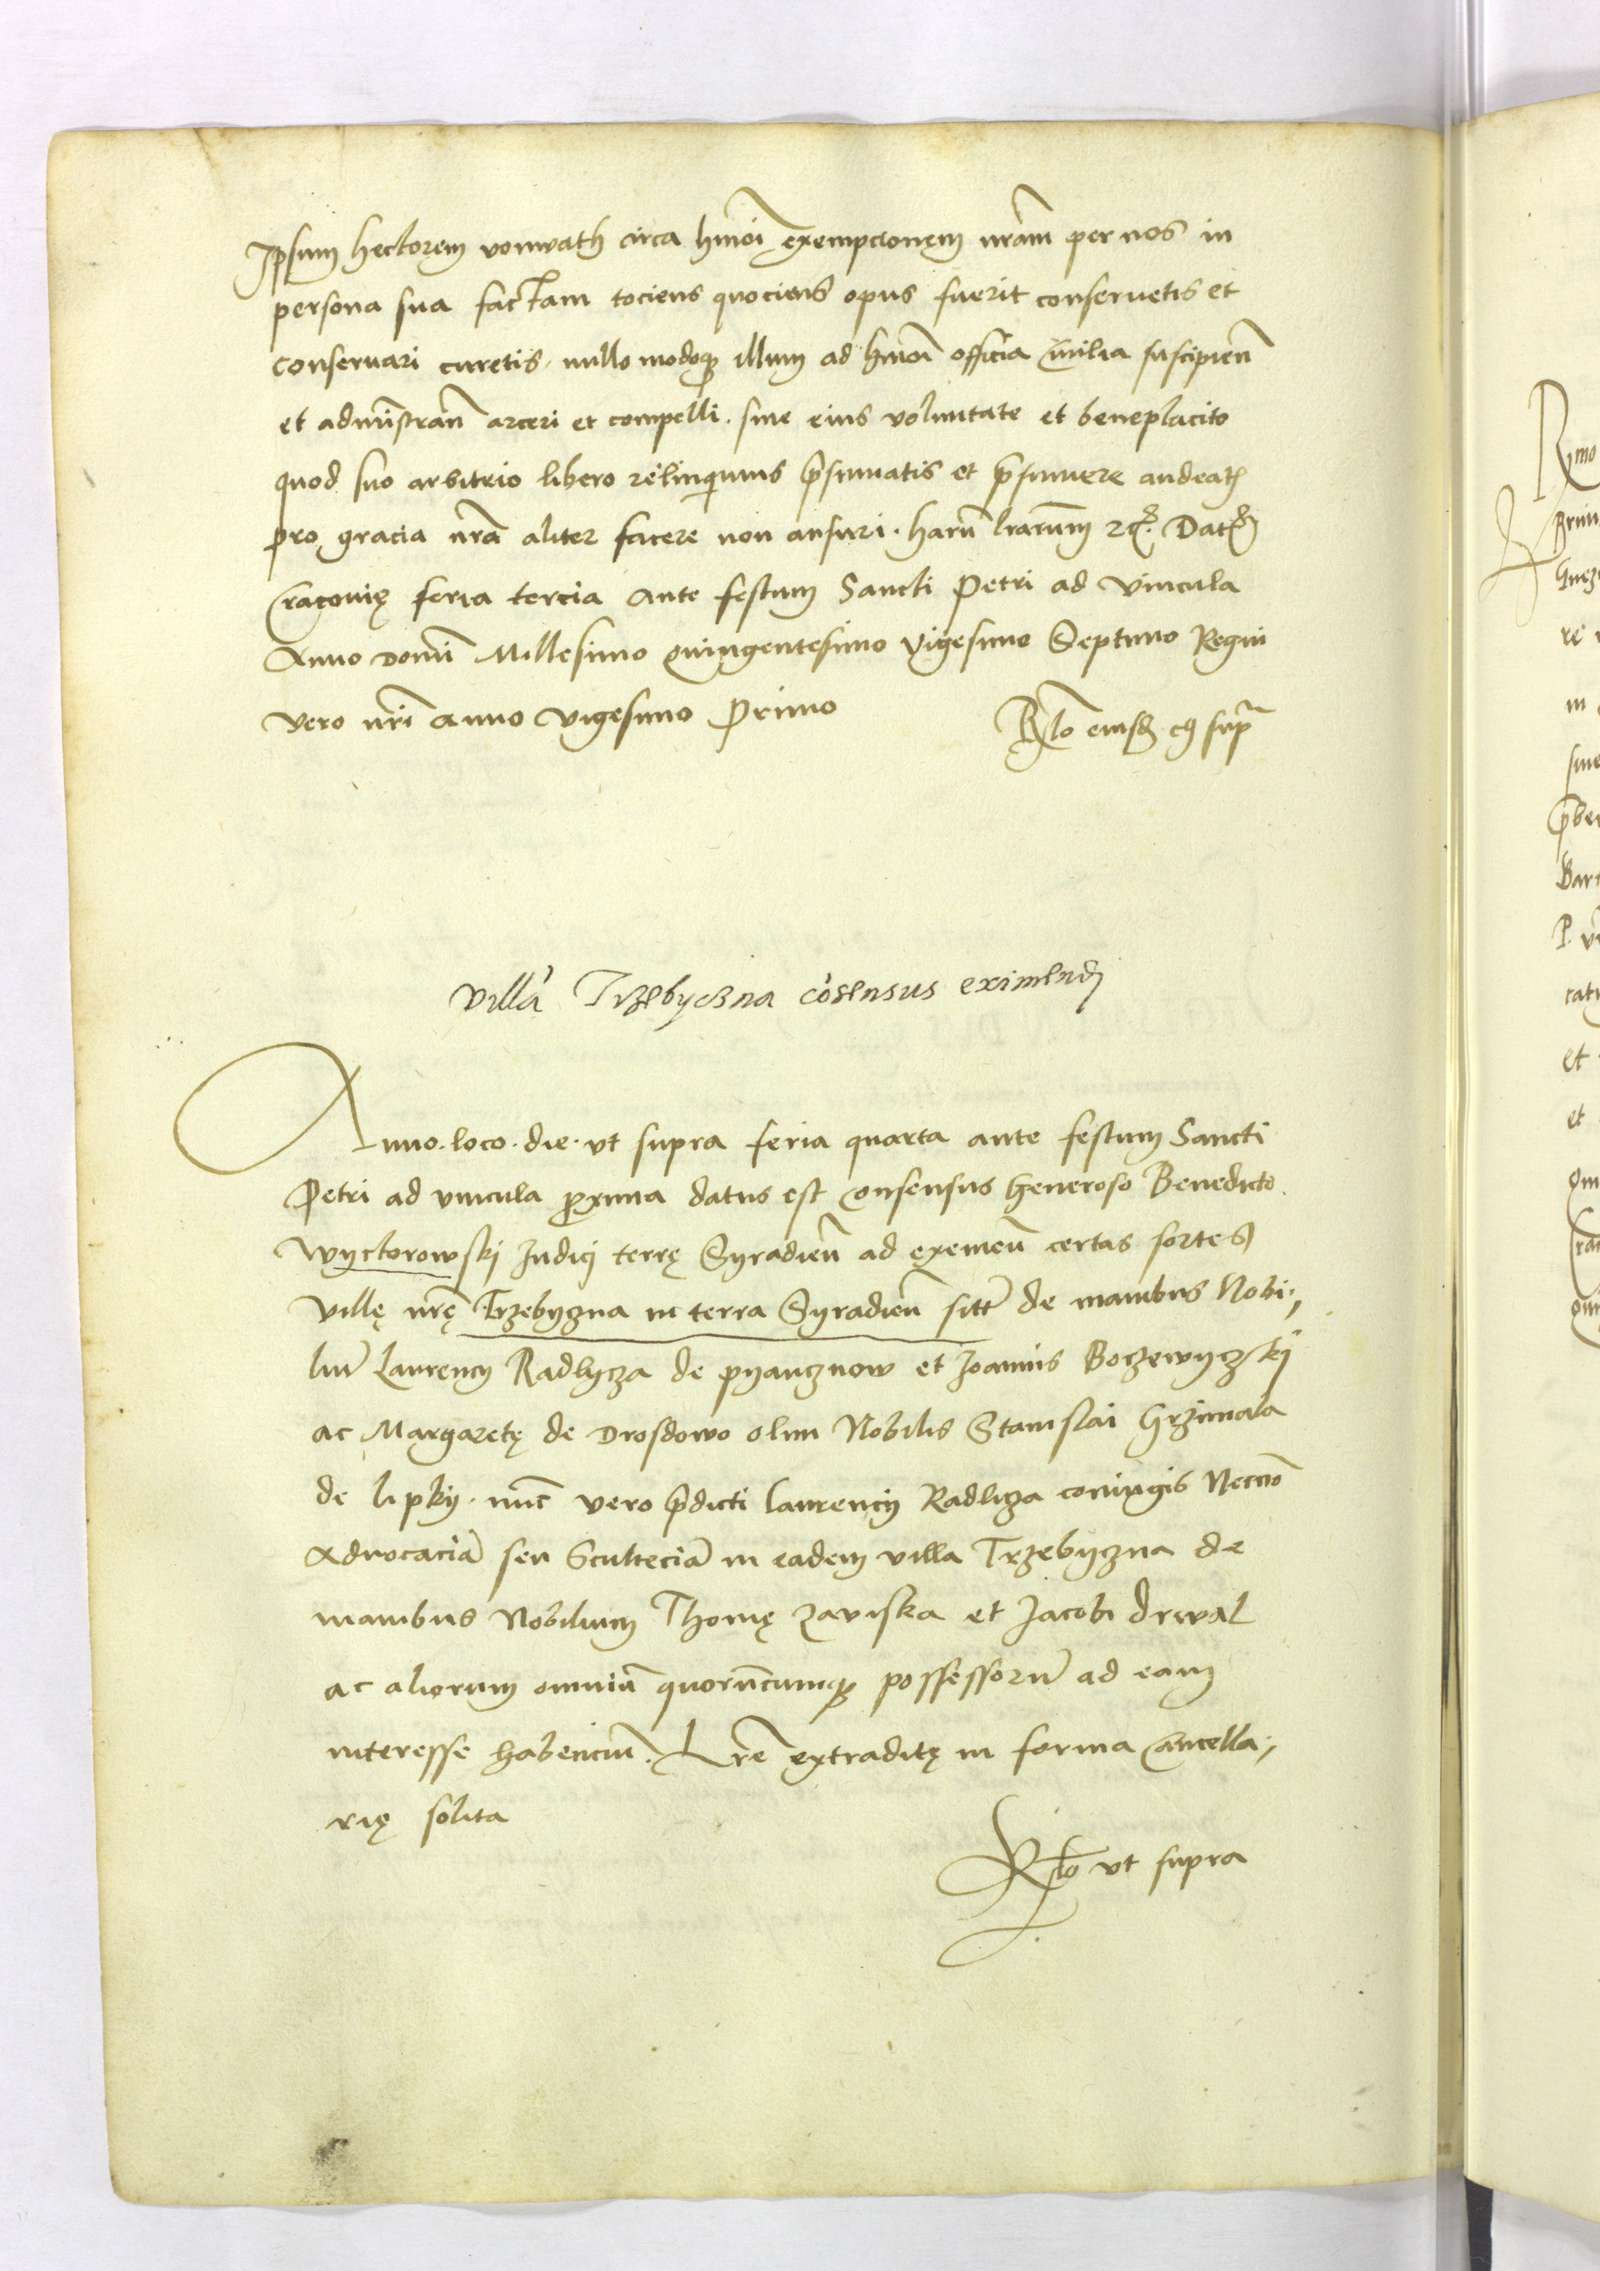 Ipsum hectorem vonwath circa hmoi exempcionem nram per nos in
persona sua factam tociens quociens opus fuerit conservetis et
conservari curetis nullo modoq illum ad hmoi officia suscipien
et administran arceri et compelli sine eius voluntate et beneplacito
quod suo arbitrio libero relinquimus presumatis et presumere audeatis
pro gracia nra aliter facere non ausuri harum lrarum etc. Datum
Cracovię feria tercia ante festum Sancti Petri ad vincula
Anno domini Millesimo quingentesimo vigesimo Septimo Regni
vero nri anno vigesimo primo
Rlo eiusd q supra
Villa Trzebyczna cosensus eximendi
Anno loco die ut supra feria quarta ante festum Sancti
Petri ad vincula proxima datus est consensus Generoso Benedicto
Wyctorowskj Iudici terrę Syradien ad exemen certas sortes
villę nrę Trzebyzna in terra Syradien sitt de manibus Nobi-
lium Laurency Radlycza de pyancznow et Joannis Boczewyczskj
ac Margaretę de Drosdowo olim Nobilis Stanislai Grzimala
de lipky nunc vero predicti laurency Radlicza coniugis Necno
Advocaciam seu Sculteciam in eadem villa Trzebyczna de
manibus Nobilium Thomę zaviska et Jacobi drwal
ac aliorum omnium quorumcumq possessorum ad eam
interesse habencium. Lre extraditę in forma cancella-
rię solita
Rlo ut supra